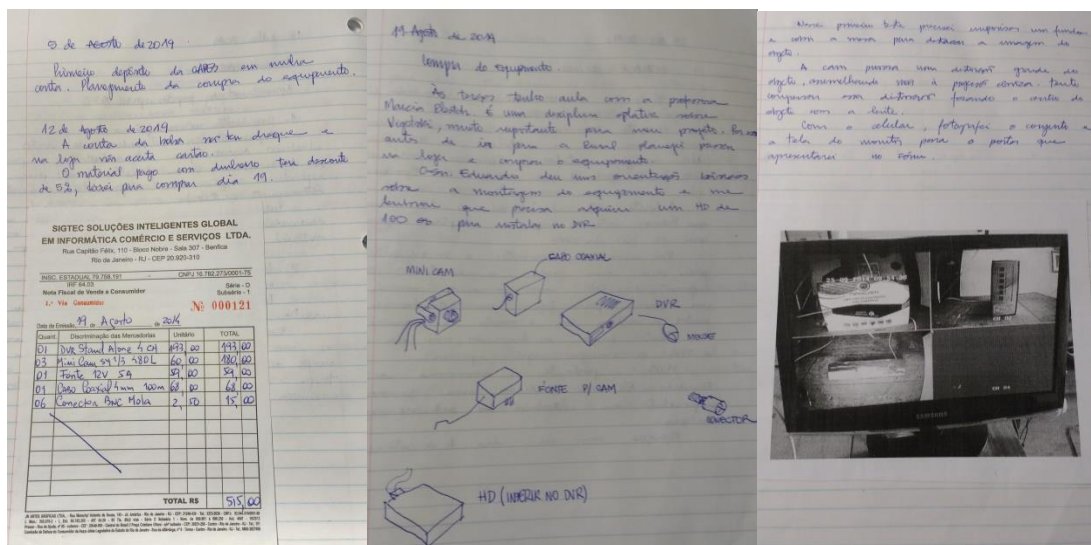 5 de Agosto de 2019.
Primeiro depósito da CAPES em minha
conta. Planejamento da compra do equipamento.
12 de Agosto de 2019
A conta da bolsa não tem cheque e
na loja não aceita cartão.
O material pago com dinheiro tem desconto
de 5%, deixei para comprar dia 19.
SIGTEC SOLUÇÕES INTELIGENTES GLOBAL
EM INFORMÁTICA COMÉRCIO E SERVIÇOS LTDA.
Rua Capitão Félix, 110 - Bloco Nobre - Sala 307 - Benfica
Rio de Janeiro - RJ - CEP 20.920-310
INSC. ESTADUAL 79.758.191 - CNPJ 10.782.273/0001-75
IRF 64.03 Série - D
Nota Fiscal de Venda a Consumidor Subsérie - 1
1.ª Via Consumidor Nº 000121
Data da Emissão, 19 de Agosto de 2014
Quant. Discriminação das Mercadorias Unitário TOTAL
01 DVR Stand Alone 4 CH 193,00 193,00
03 Mini Cam 1/3 480L 60,00 180,00
01 Fonte 12V 5A 59,00 59,00
01 Cabo Coaxial 4mm 100m 68,00 68,00
06 Conector BNC Mola 2,50 15,00
TOTAL R$ 515,00
19 Agosto de 2019
Compra do equipamento.
As terças tenho aula com a professora
Marcia. É uma disciplina optativa sobre
Vygotski, muito importante para meu projeto. Por isso
antes de ir para a Rural planejei passar
na loja e comprar o equipamento.
O sr. Eduardo deu umas orientações básicas
sobre a montagem do equipamento e me
lembrou que preciso adquirir um HD de
para instalar no DVR
MINI CAM
CABO COAXIAL
DVR
MOUSE
FONTE P/ CAM
CONECTOR
HD (INSERIR NO DVR)
Nesse primeiro teste precisei improvisar um fundo
e cobrir a mesa para destacar a imagem do
objeto.
A cam possui uma distorção grande do
objeto, assemelhando mais à projeção cônica. Tentei
compensar essa distorção focando o centro do
objeto com a lente.
Com o celular, fotografei o conjunto
e a tela do monitor para o poster que
apresentarei no
SAMSUNG